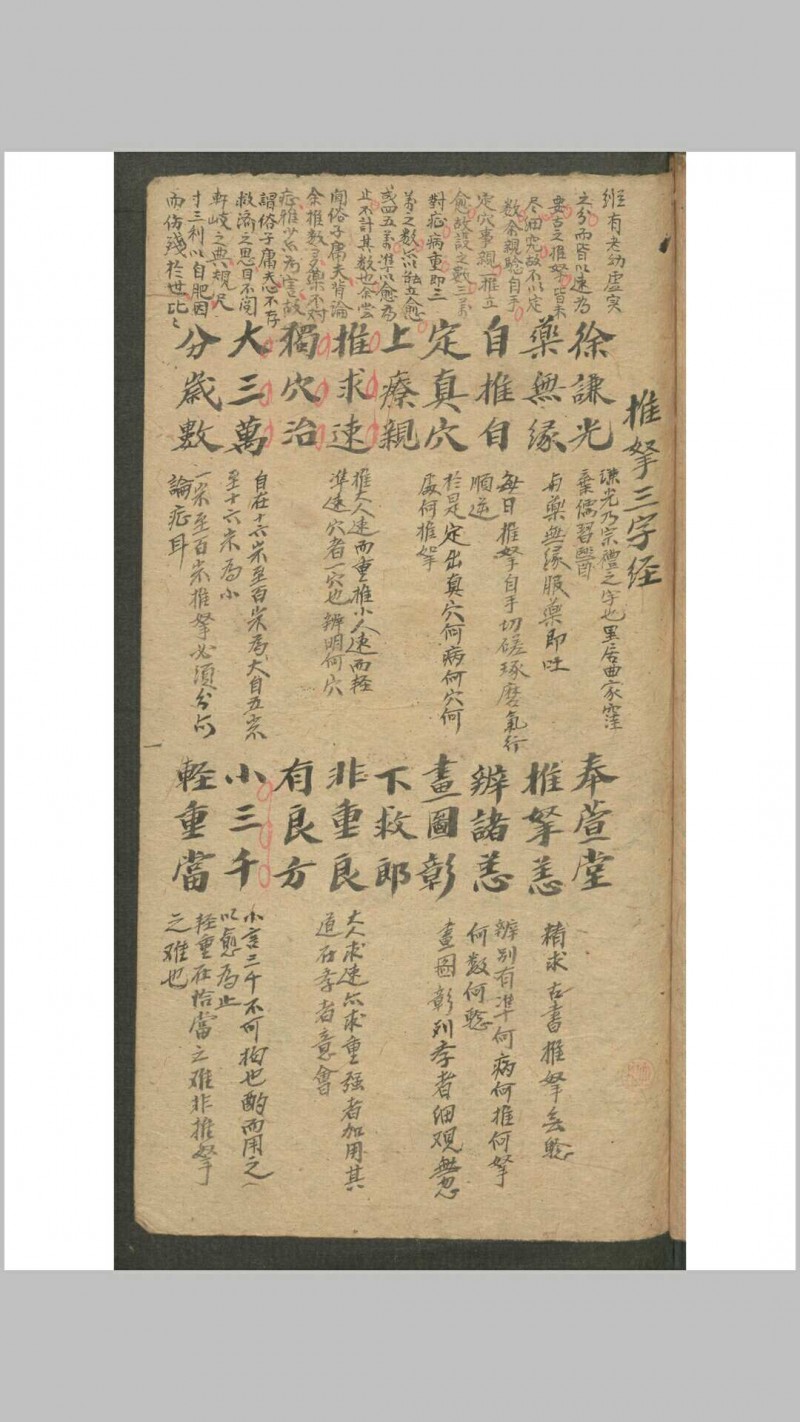 推拏三字经
徐謙光
奉萱堂
謙光乃宗禮之字也里居曲家窪
棄儒習醫
藥無缘
推拏恙
与藥無缘服藥即吐
精求古書推拏去驗
自推自
辨諸恙
每日推拏自手切磋琢磨氣行
順逆
辨别有準何病何推何拏
何数何驗
定真穴
畫圖彰
於是定出真穴何病何穴何
處何推拏
畫图彰列孝者细观無忽
上療親
下救郎
推求速
非重良
推大人速而重推小人速而轻
準速穴者一穴也辨明何穴
大人求速亦求重强者加用其
道在孝者意會
獨穴治
有良方
大三萬
小三千
自在十六崇至百崇為大自五崇
至十六崇為小
小言三千不可拘也酌而用之
以愈為止
分歲數
輕重當
一崇至百崇推拏必須分占
論症耳
轻重在恰當之难非推拏
之难也
症有老幼虚实
之分而皆以速為
要古之推拏皆未
尽细究故不以定
数余親驗自手
定穴事親一推立
愈故設之数三萬
對症病重即三
萬之数亦以能立愈
或四五萬準以愈為
止不計其数也余尝
闻俗子庸夫背論
余推数多藥不对
症雖少亦為害故
謂俗子庸夫心不存
救濟之思目不阅
軒岐之典規尺
寸三利以自肥因
而伤殘於世比比